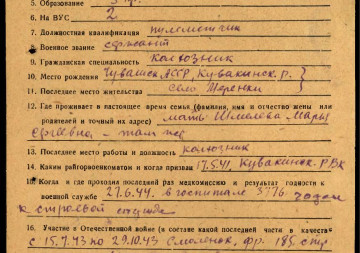 5. Образование
6. На ВУС 2
7. Должностная квалификация пулеметчик
8. Военное звание сержант
9. Гражданская специальность колхозник
10. Место рождения Чувашск. АССР, Кувакинск. р.
11. Последнее место жительства село Теренки
12. Где проживает в настоящее время семья (фамилия, имя и отчество жены или
родителей и точный их адрес) мать Шмелева Мария
Сергеевна, – там же
13. Последнее место работы и должность колхозник
14. Каким горвоенкоматом и когда призван 17.5.41, Кувакинск. РВК
15. Когда и где проходил последний раз медкомиссию и результат годности к
военной службе 27.6.44. в госпитале 3776. годен
к строевой службе
16. Участие в Отечественной войне (в составе какой последней части в качестве
с 15.7.43 по 29.10.43 Смоленск. фр. 185 стр